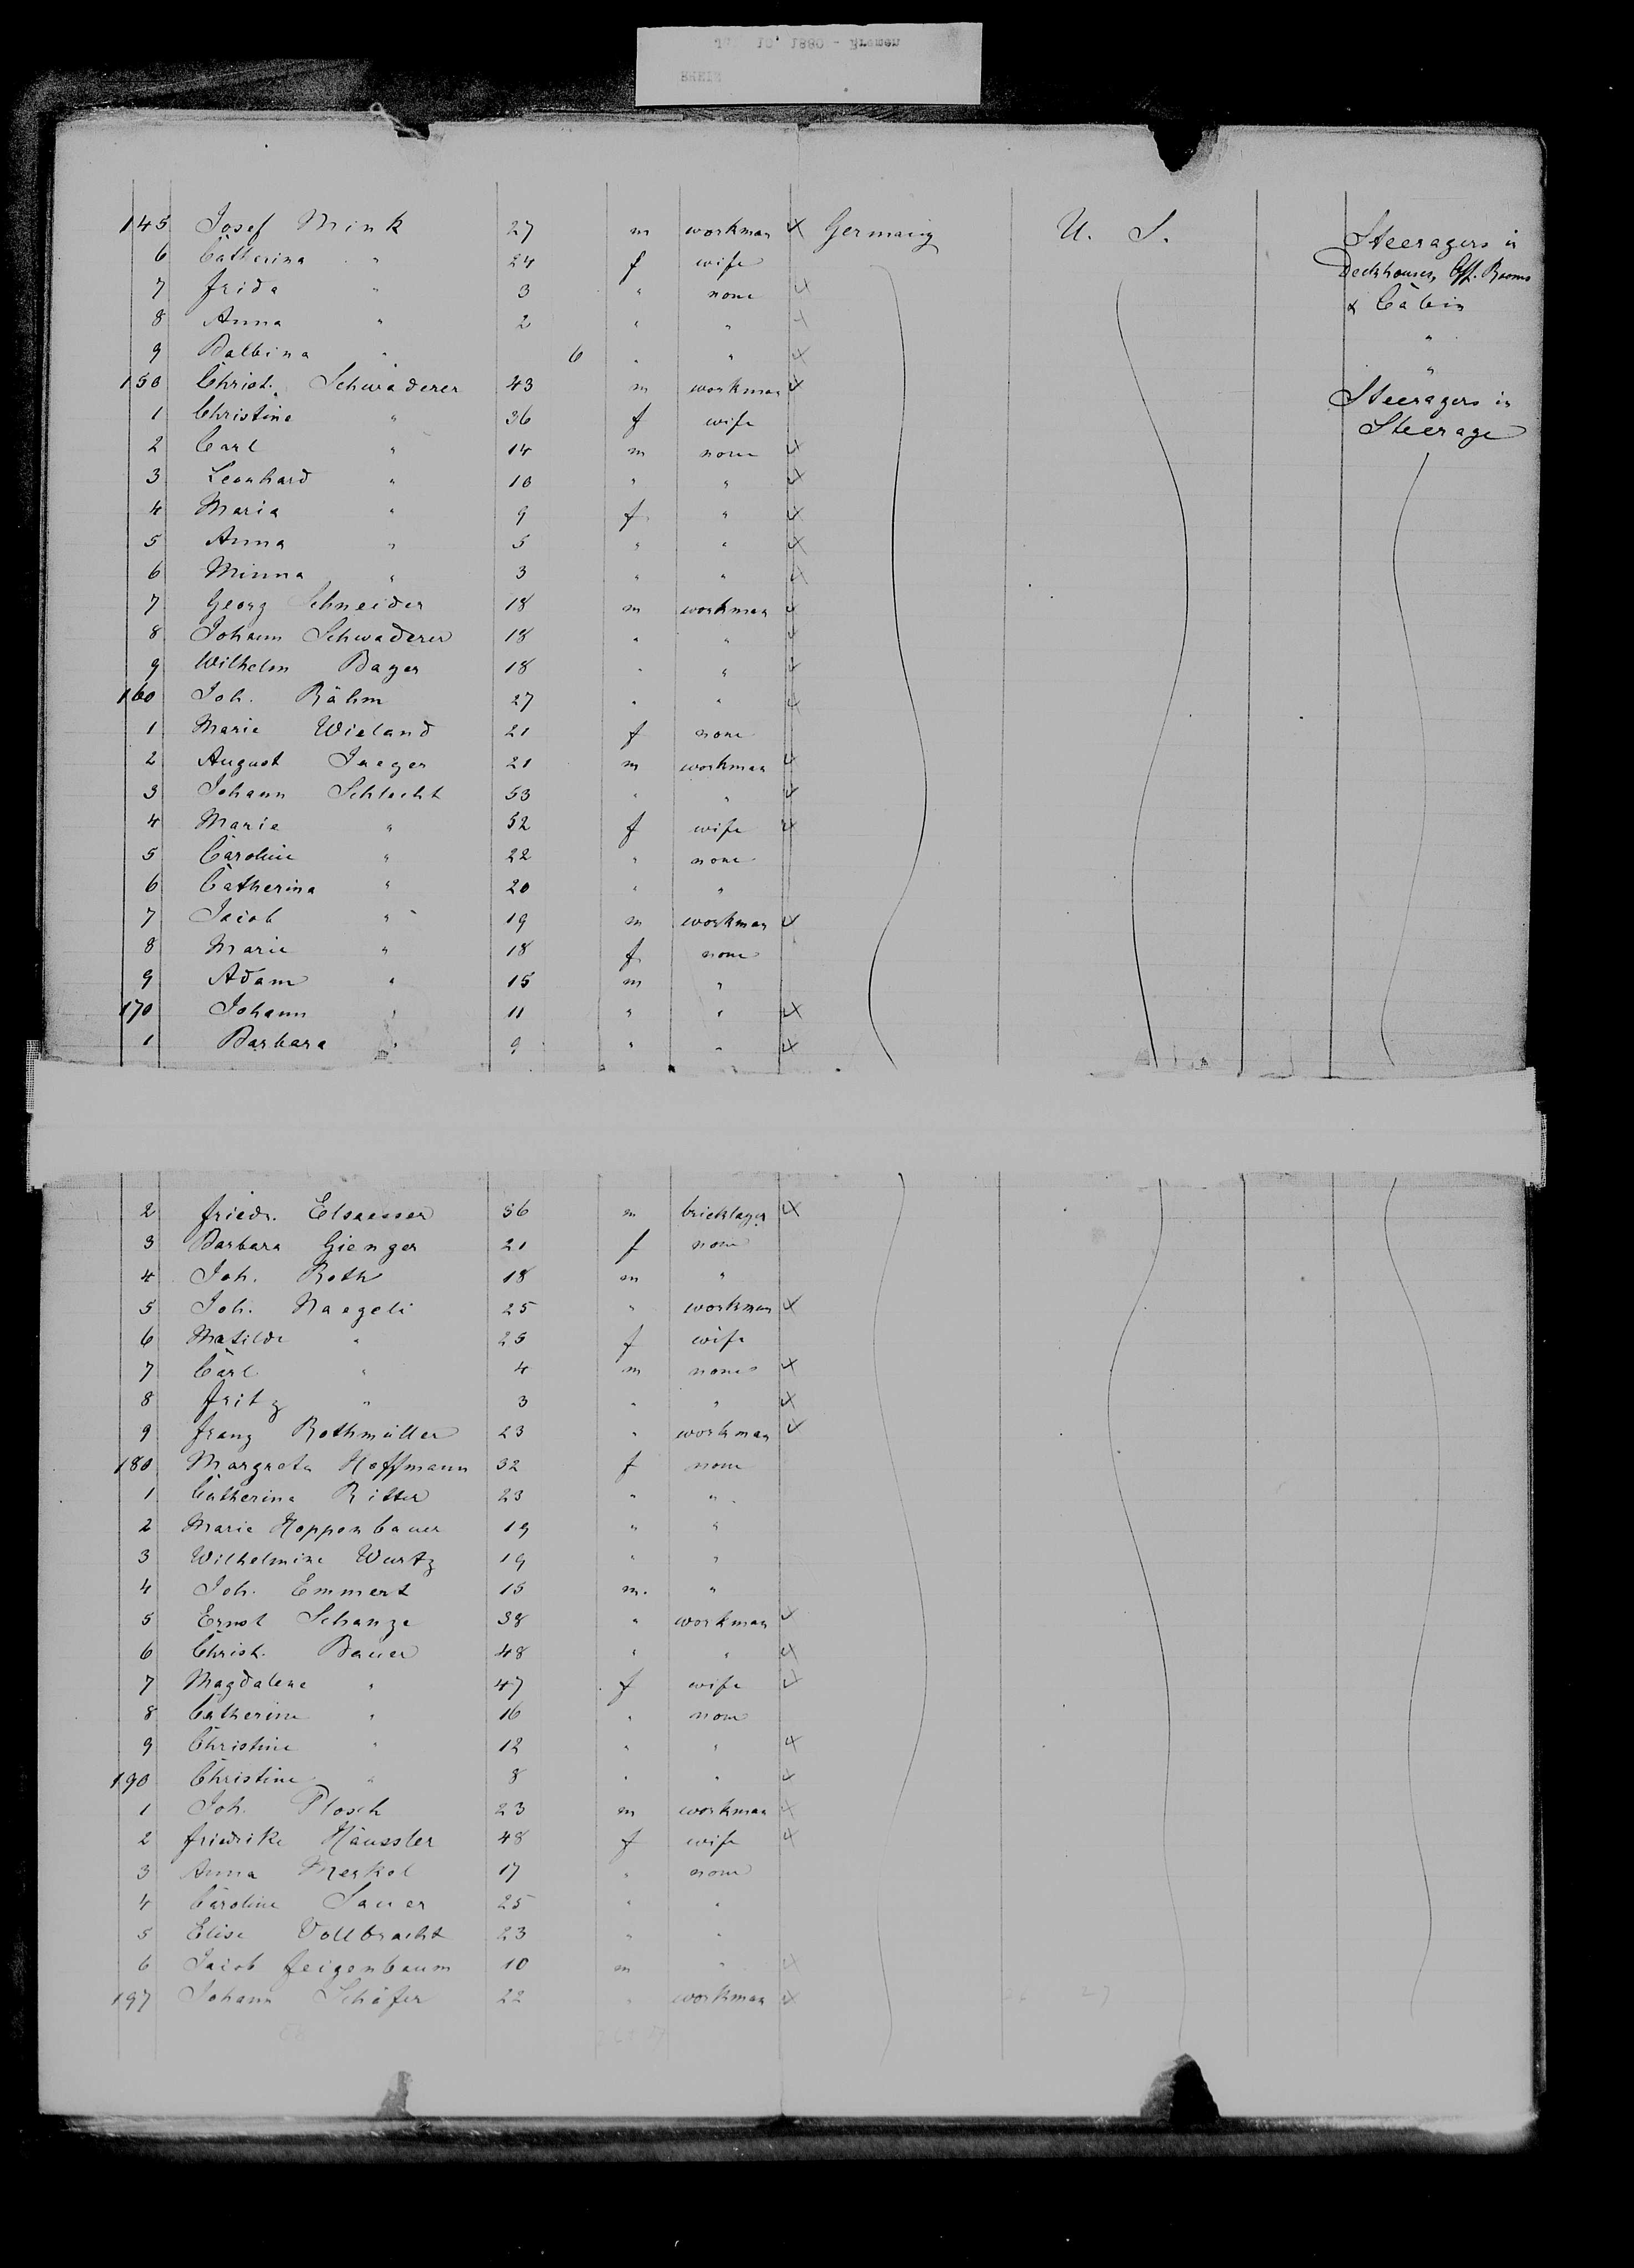 10 1880 - Bremen
145 Josef Mink 27 m workman x Germany U. S. Steeragers in
6 Catherina " 24 f wife Deckhouses, Off. Rooms
7 Frida " 3 " none x & Cabin
8 Anna " 2 " " x "
9 Balbina " 6 " " x "
150 Christ. Schwaderer 43 m workman x Steeragers in
1 Christine " 36 f wife Steerage
2 Carl " 14 m none x
3 Leonhard " 10 " " x
4 Maria " 9 f " x
5 Anna " 5 " " x
6 Minna " 3 " " x
7 Georg Schneider 18 m workman x
8 Johann Schwaderer 18 " " x
9 Wilhelm Bager 18 " " x
160 Joh. Böhm 27 " " x
1 Marie Wieland 21 f none
2 August Jaeger 21 m workman x
3 Johann Schlecht 53 " " x
4 Marie " 52 f wife x
5 Caroline " 22 " none
6 Catherina " 20 " "
7 Jacob " 19 m workman x
8 Marie " 18 f none
9 Adam " 15 m "
170 Johann " 11 " " x
1 Barbara " 9 " " x
2 Friedr. Elsaesser 36 m bricklayer x
3 Barbara Gienger 21 f none
4 Joh. Roth 18 m "
5 Joh. Naegeli 25 " workman x
6 Matilde " 25 f wife
7 Carl " 4 m none x
8 Fritz " 3 " " x
9 Franz Rothmüller 23 " workman x
180 Margreta Hoffmann 32 f none
1 Catherina Ritter 23 " "
2 Marie Hoppenbauer 19 " "
3 Wilhelmine Wurtz 19 " "
4 Joh. Emmert 15 m. "
5 Ernst Schanze 38 " workman x
6 Christ. Bauer 48 " " x
7 Magdalene " 47 f wife x
8 Catherine " 16 " none
9 Christine " 12 " " x
190 Christine " 8 " " x
1 Joh. Plosch 23 m workman x
2 Friedrike Häussler 48 f wife x
3 Anna Merkel 17 " none
4 Caroline Sauer 25 " "
5 Elise Vollbracht 23 " "
6 Jacob Feigenbaum 10 m " x
197 Johann Schäfer 22 " workman x